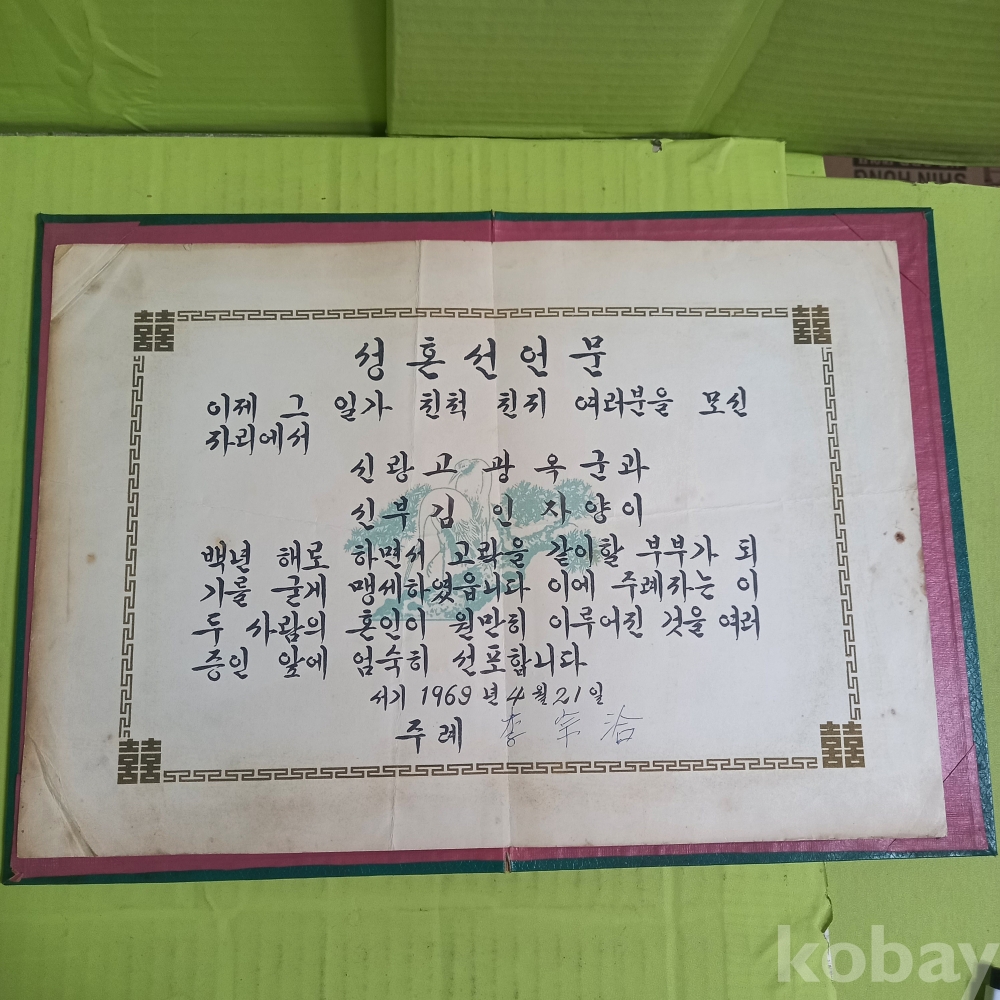 SHIN HONG
囍 囍
성혼선언문
이제 그 일가 친척 친지 여러분을 모신
자리에서
신랑 고 광 옥 군과
신부 김 인 자 양이
백년 해로 하면서 고락을 같이할 부부가 되
기를 굳게 맹세하였읍니다 이에 주례자는 이
두 사람의 혼인이 원만히 이루어진 것을 여러
증인 앞에 엄숙히 선포합니다
서기 1969년 4월 21일
주례 李宗洽
囍 囍
kobay